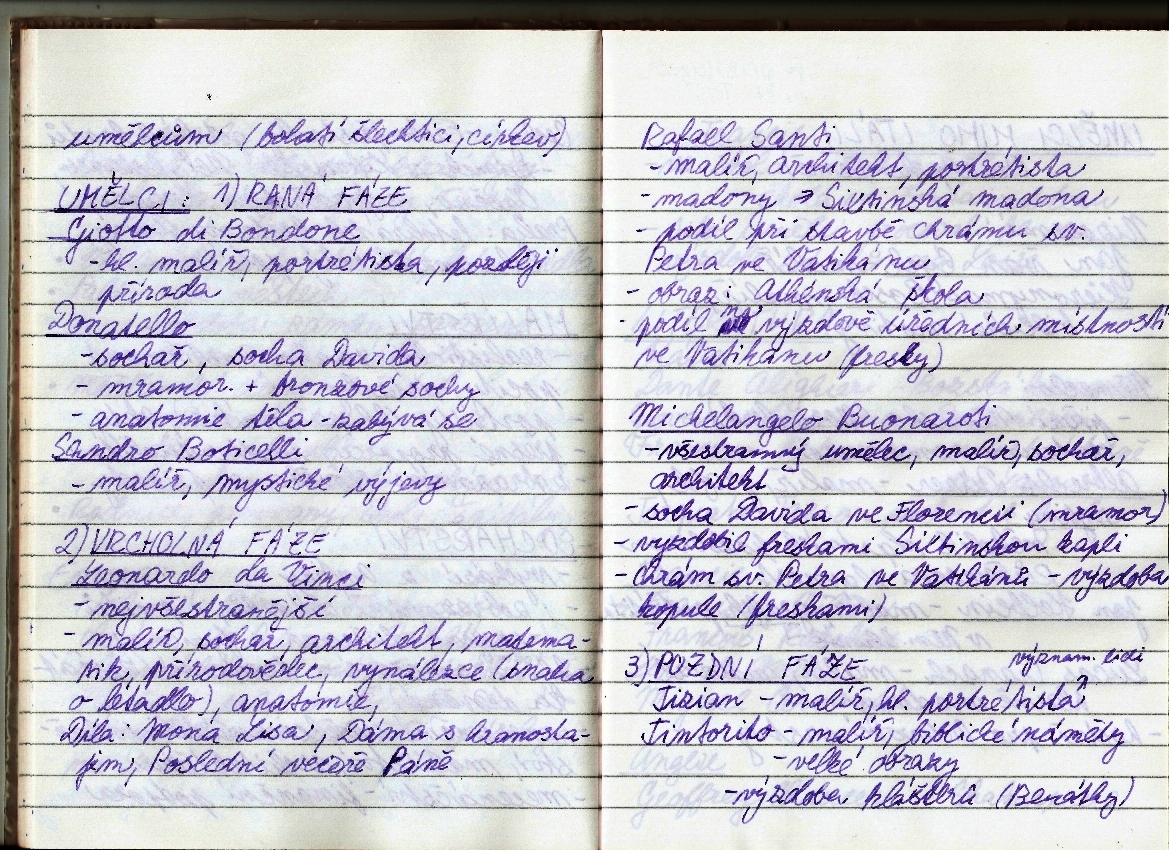 umělcům (bohatí šlechtici, církev)
UMĚLCI: 1) RANÁ FÁZE
Giotto di Bondone
-hl. malíř, portrétista, později
příroda
Donatello
-sochař, socha Davida
- mramor. + bronzové sochy
- anatomie těla - zabývá se
Sandro Boticelli
- malíř, mystické výjevy
2) VRCHOLNÁ FÁZE
Leonardo da Vinci
- nejvšestranější
- malíř, sochař, architekt, matema-
tik, přírodovědec, vynálezce (snaha
o letadlo), anatomie,
Díla: Mona Lisa, Dáma s hranosta-
jem, Poslední večeře Páně
Rafael Santi
- malíř, architekt, portrétista
- madony → Sixtinská madona
- podíl při stavbě chrámu sv.
Petra ve Vatikánu
- obraz: Athénská škola
- podíl na výzdobě úředních místností
ve Vatikánu (fresky)
Michelangelo Buonaroti
- všestranný umělec, malíř, sochař,
architekt
- socha Davida ve Florencii (mramor)
- vyzdobil freskami Sixtinskou kapli
- Chrám sv. Petra ve Vatikánu - výzdoba
kopule (freskami)
3) POZDNÍ FÁZE
význam. lidi
Tizian - malíř, hl. portrétista
Tintorito - malíř, biblické náměty
- velké obrazy
- výzdoba klášterů (Benátky)